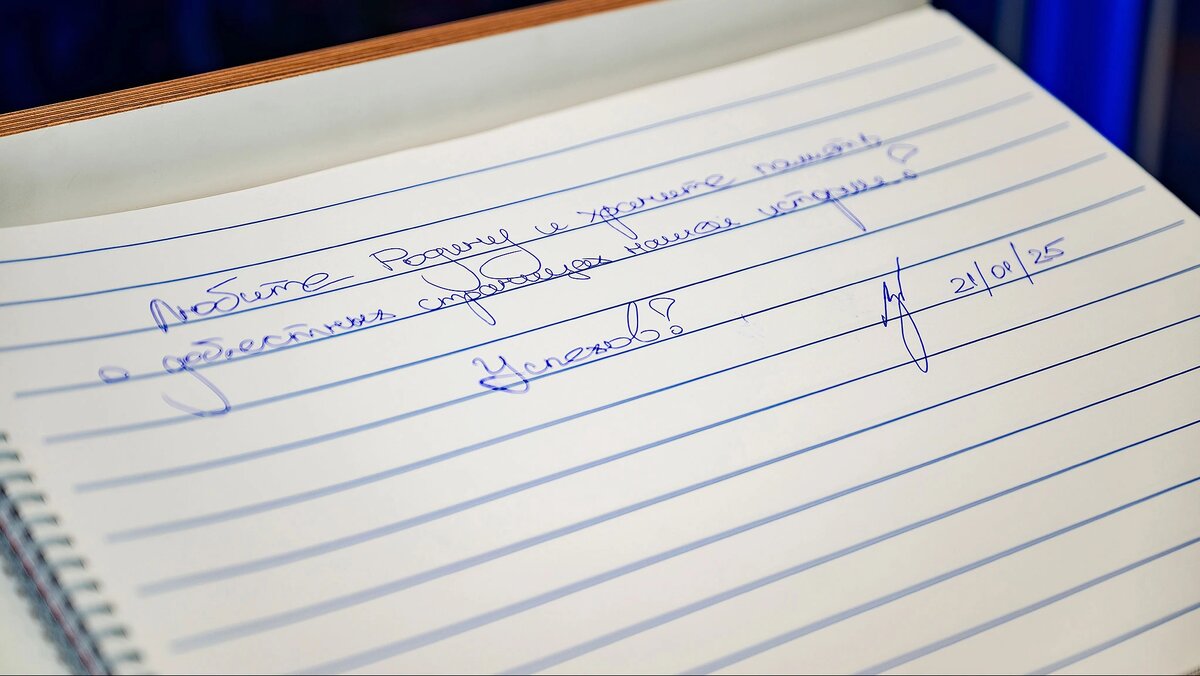 Любите Родину и храните память
о доблестных страницах нашей истории!
Успехов!
21/01/25